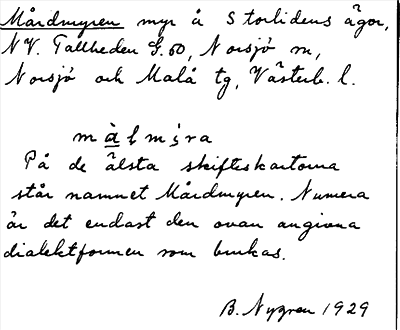 Mårdmyren myr å Storlidens ägor,
N.V. Tallheden G. 60, Norsjö sn,
Norsjö och Malå tg, Västerb. l.
màlmira
På de älsta skifteskartorna
står namnet Mårdmyren. Numera
är det endast den ovan angivna
dialektformen som brukas.
B. Nygren 1929